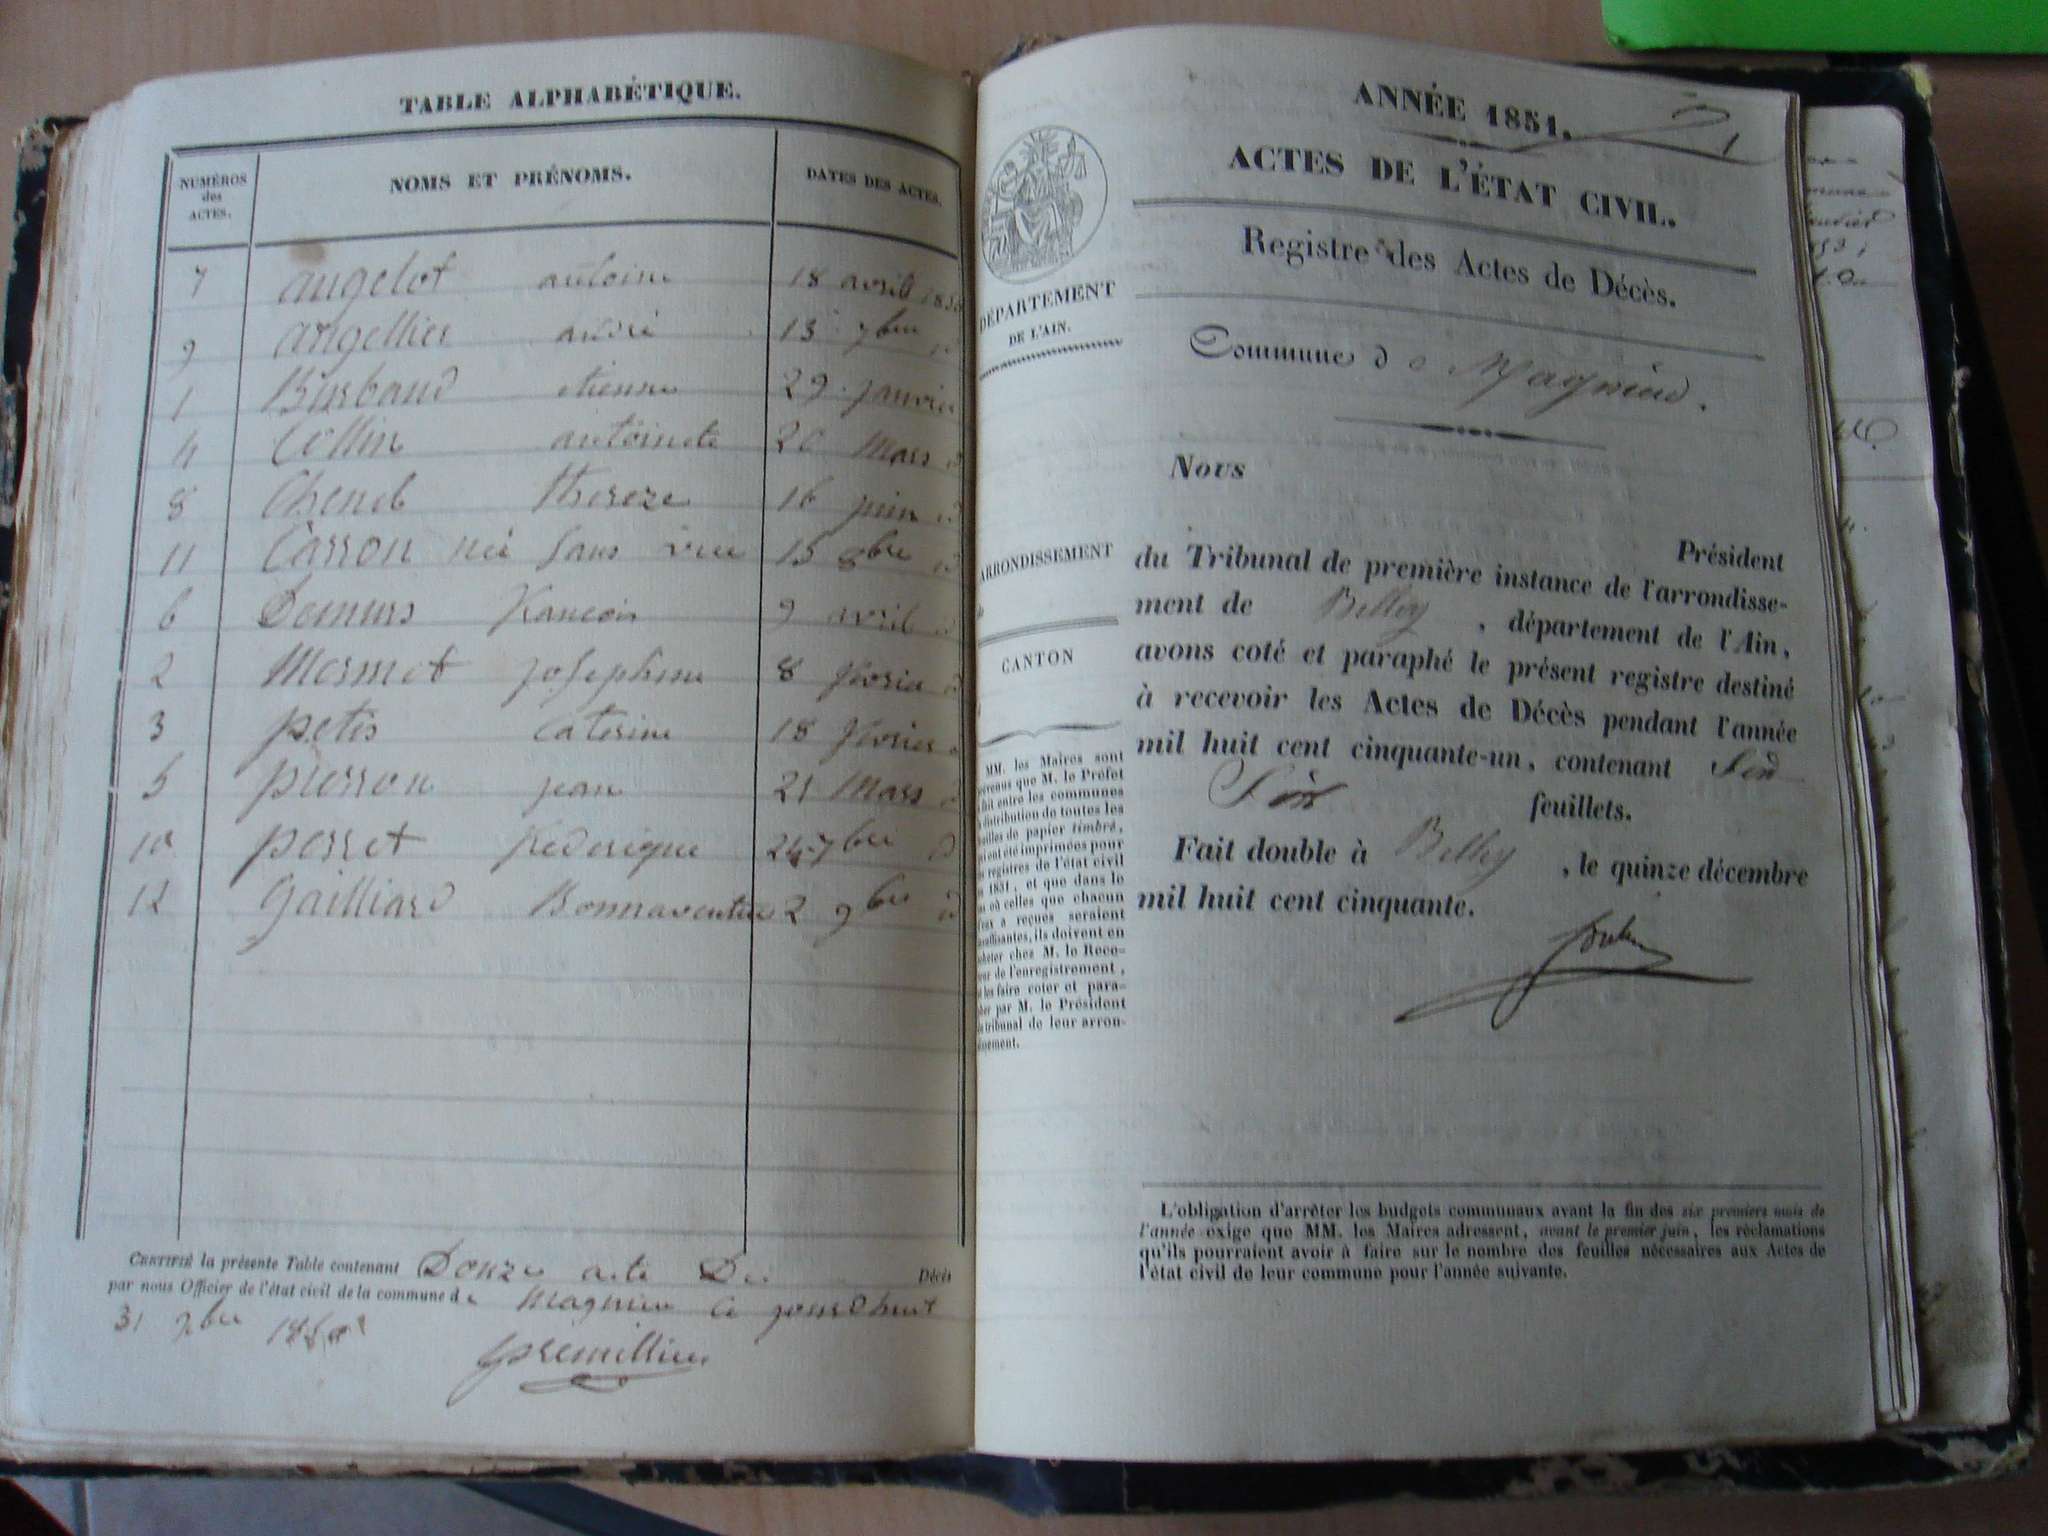 TABLE ALPHABÉTIQUE.
NUMÉROS des ACTES. NOMS ET PRÉNOMS. DATES DES ACTES.
7 angelot antoine 18 avril 1850
9 argellier andré 13 7bre id
1 Burbaud etienne 29 janvier
4 Collin antoinete 20 Mars id
8 Chenel thereze 16 juin id
11 Carron né sans vie 15 8bre id
6 Demurs francois 9 avril id
2 Mermet josephine 8 fevrier id
3 petis caterine 18 fevrier
5 pierron jean 21 Mars
10 perret frederique 24 7bre id
12 gailliard Bonnaventure 2 9bre id
CERTIFIÉ la présente Table contenant Douze acte De Décès
par nous Officier de l'état civil de la commune de Magnieu Ce jourdhuit
31
premillieu
ANNÉE 1851.
ACTES DE L'ÉTAT CIVIL.
Registre des Actes de Décès.
DÉPARTEMENT
DE L'AIN.
Commune de Magnieu.
ARRONDISSEMENT
CANTON
Nous
Président
du Tribunal de première instance de l'arrondisse-
ment de Belley, département de l'Ain,
avons coté et paraphé le présent registre destiné
à recevoir les Actes de Décès pendant l'année
mil huit cent cinquante-un, contenant
Six feuillets.
Fait double à Belley, le quinze décembre
mil huit cent cinquante.
MM. les Maires sont
prévenus que M. le Préfet
fait entre les communes
distribution de toutes les
feuilles de papier timbré,
qui ont été imprimées pour
les registres de l'état civil
1851, et que dans le
cas où celles que chacun
d'eux a reçues seraient
insuffisantes, ils doivent en
acheter chez M. le Rece-
veur de l'enregistrement,
et les faire coter et para-
pher par M. le Président
du tribunal de leur arron-
dissement.
L'obligation d'arrêter les budgets communaux avant la fin des six premiers mois de
l'année exige que MM. les Maires adressent, avant le premier juin, les réclamations
qu'ils pourraient avoir à faire sur le nombre des feuilles nécessaires aux Actes de
l'état civil de leur commune pour l'année suivante.